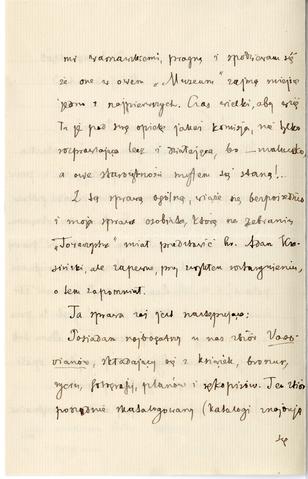 mi warszawskiemi, pragnę i spodziewam się
że one w owem „Muzeum" zajmą miejsce
jedno z najpierwszych. Czas wielki, aby wzię
ła je pod swą opiekę jakaś komisja, nie tylko
rozprawiająca lecz i działająca, bo
a owe starożytności mytem się staną!...
Z tą sprawą ogólną, wiąże się bezpośrednio
i moja sprawa osobista, którą na zebraniu
„Towarzystwa" miał przedstawić hr. Adam Kra-
siński, ale zapewne, przy
o tem zapomniał.
Ta sprawa zaś jest następująca:
Posiadam najbogatszy u nas zbiór Varso-
vianów, składający się z książek, broszur,
rycin, fotografij, planów i rękopisów. Ten zbiór
porządnie skatalogowany (katalogi znajdują
się